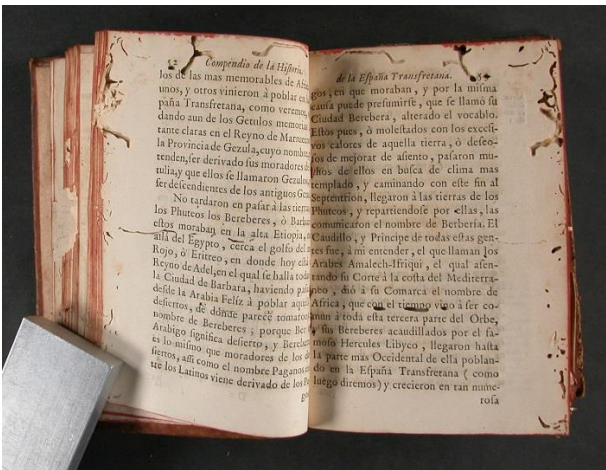 52 Compendio de la Historia.
los de las mas memorables de
unos, y otros vinieron à poblar en
paña Transfretana, como veremos,
dando aun de los Getulos memorias
tante claras en el Reyno de
la Provincia de Gezula, cuyo nombre
tenden, ser derivado sus moradores de
tulia, y que ellos se llamaron Gezulos,
ser descendientes de los antiguos
No tardaron en pasar à las tierras
los Phuteos los Bereberes, ò
estos moraban en la alta Etiopia,
allá del Egypto, cerca el golfo del
Rojo, ò Eritreo, en donde hoy está
Reyno de Adel, en el qual se halla toda
la Ciudad de Barbara, haviendo
desde la Arabia Felíz à poblar aquel
desiertos, de donde parece tomaron
nombre de Bereberes; porque Ber
Arabigo significa desierto, y
es lo mismo que moradores de los
siertos, assi como el nombre Paganos
tre los Latinos viene derivado de los
de la España Transfretana.
gos, en que moraban, y por la misma
causa puede presumirse, que se llamó su
Ciudad Berebera, alterado el vocablo.
Estos pues, ò molestados con los excesi-
vos calores de aquella tierra, ò deseo-
sos de mejorar de asiento, pasaron mu-
chos de ellos en busca de clima mas
templado, y caminando con este fin al
Septentrion, llegaron à las tierras de los
Phuteos, y repartiendose por ellas, las
comunicaron el nombre de Berbería. El
Caudillo, y Principe de todas estas gen-
tes fue, à mi entender, el que llaman los
Arabes Amalech-Ifriqui, el qual asen-
tando su Corte à la costa del Mediterra-
neo, dió à su Comarca el nombre de
Africa, que con el tiempo vino à ser co-
mun à toda esta tercera parte del Orbe,
y sus Bereberes acaudillados por el fa-
moso Hercules Libyco, llegaron hasta
la parte mas Occidental de ella poblan-
do en la España Transfretana (como
luego diremos) y crecieron en tan nume-
rosa